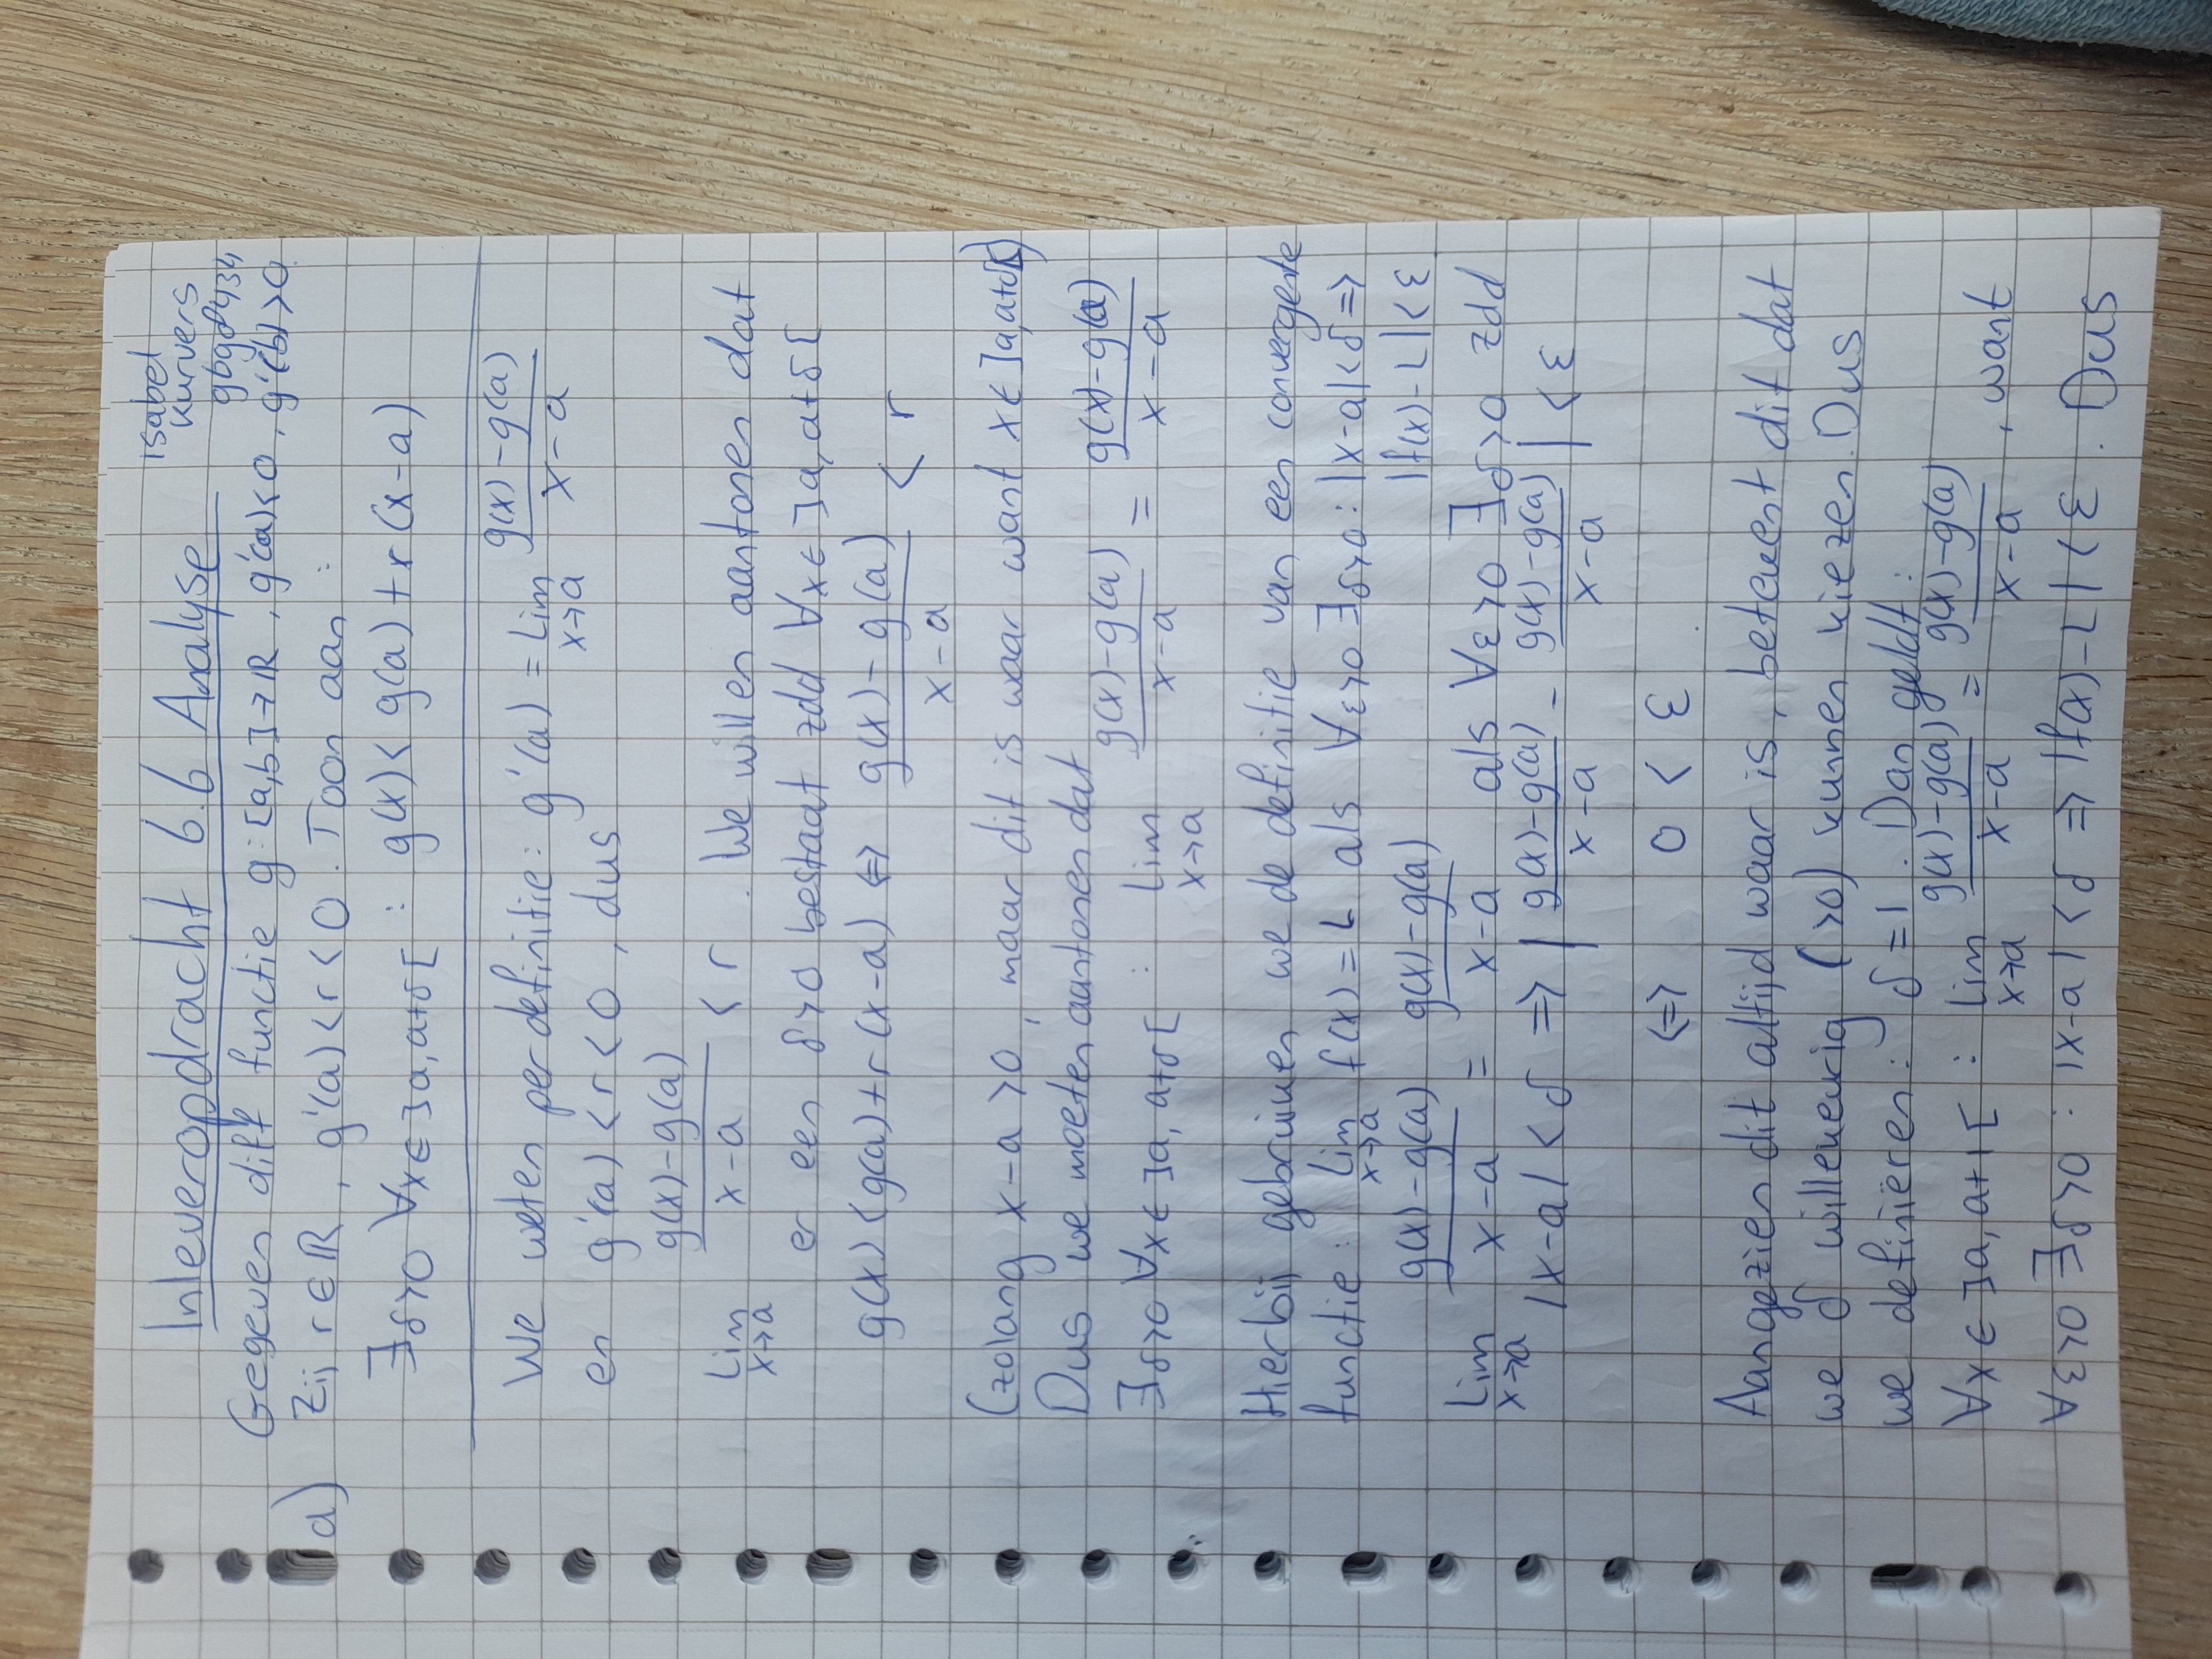 Inleveropdracht 6.6 Analyse
Isabel
Kurvers
Gegeven diff functie g: [a,b]→ℝ, g'(a)<0, g'(b)>0.
a) Zij r∈ℝ, g'(a)<r<0. Toon aan:
∃δ>0 ∀x∈]a,a+δ[ : g(x)<g(a)+r(x-a)
We weten per definitie: g'(a) = lim x→a (g(x)-g(a))/(x-a)
en g'(a)<r<0, dus
lim x→a (g(x)-g(a))/(x-a) < r. We willen aantonen dat
er een δ>0 bestaat zdd ∀x∈]a,a+δ[
g(x)<g(a)+r(x-a) ⇔ (g(x)-g(a))/(x-a) < r
(zolang x-a>0, maar dit is waar want x∈]a,a+δ[)
Dus we moeten aantonen dat
∃δ>0 ∀x∈]a,a+δ[ : lim x→a (g(x)-g(a))/(x-a) = (g(x)-g(a))/(x-a)
Hierbij gebruiken we de definitie van een convergente
functie: lim x→a f(x)=L als ∀ε>0 ∃δ>0: |x-a|<δ ⇒
|f(x)-L|<ε
lim x→a (g(x)-g(a))/(x-a) = (g(x)-g(a))/(x-a) als ∀ε>0 ∃δ>0 zdd
|x-a|<δ ⇒ |(g(x)-g(a))/(x-a) - (g(x)-g(a))/(x-a)|<ε
⇔ 0<ε.
Aangezien dit altijd waar is, betekent dit dat
we δ willekeurig (>0) kunnen kiezen. Dus
we definiëren: δ=1. Dan geldt:
∀x∈]a,a+1[ : lim x→a (g(x)-g(a))/(x-a) = (g(x)-g(a))/(x-a), want
∀ε>0 ∃δ>0: |x-a|<δ ⇒ |f(x)-L|<ε. Dus